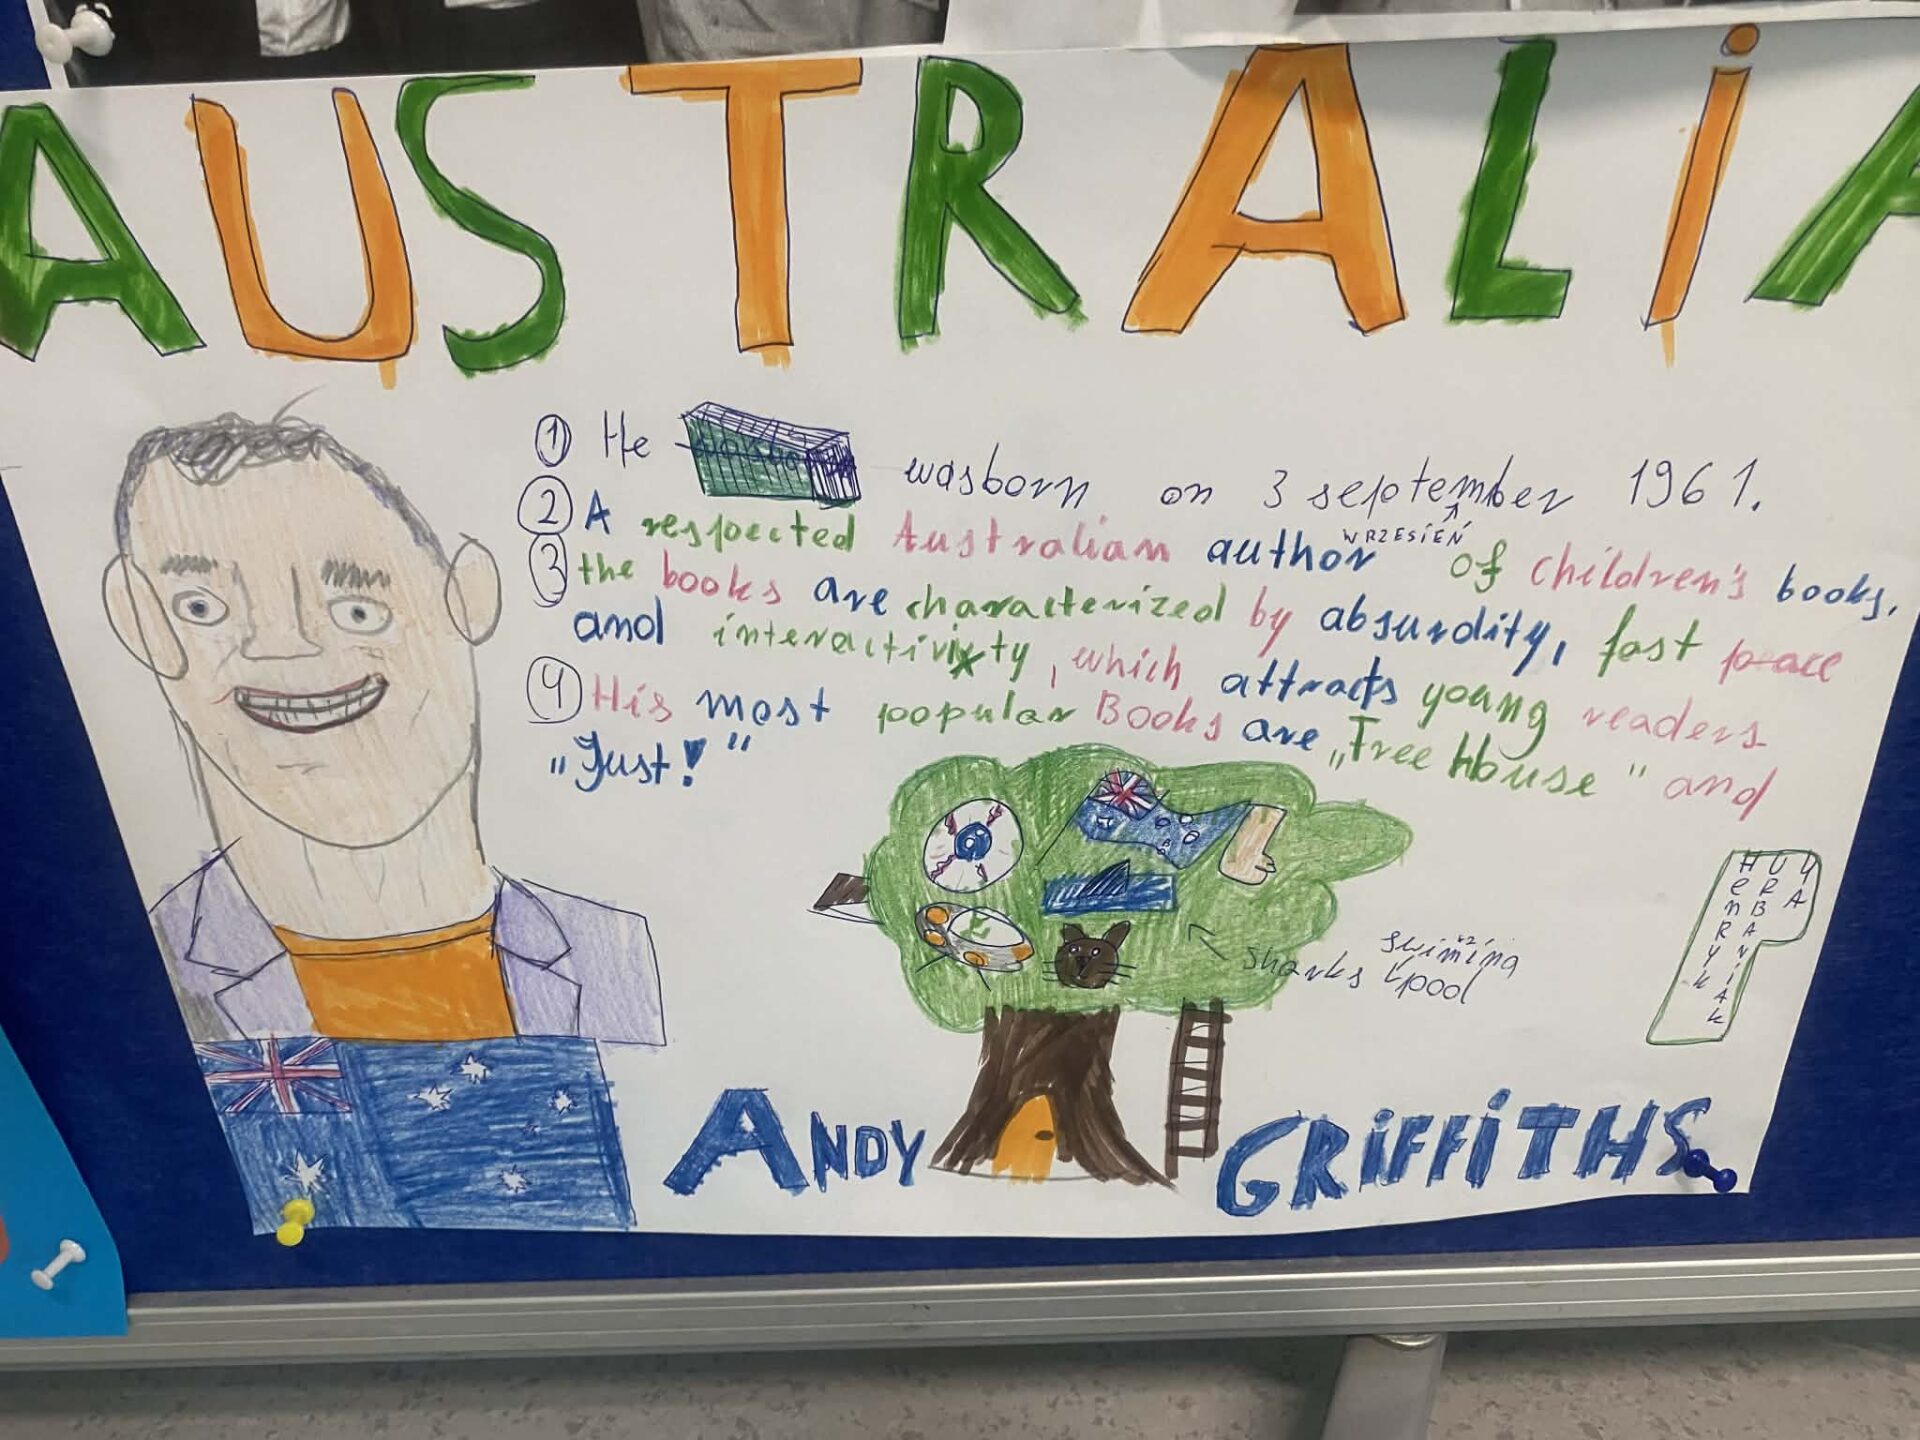 AUSTRALIA
① He wasborn on 3 september 1961.
WRZESIEŃ
② A respected Australian author of children's books,
③ the books are characterized by absurdity, fast peace
and interactivity, which attracts young readers
④ His most popular Books are „Tree House" and
"Just!"
swiming
sharks pool
HenRYk
URBANiAk
4A
ANDY GRiFFiTHS